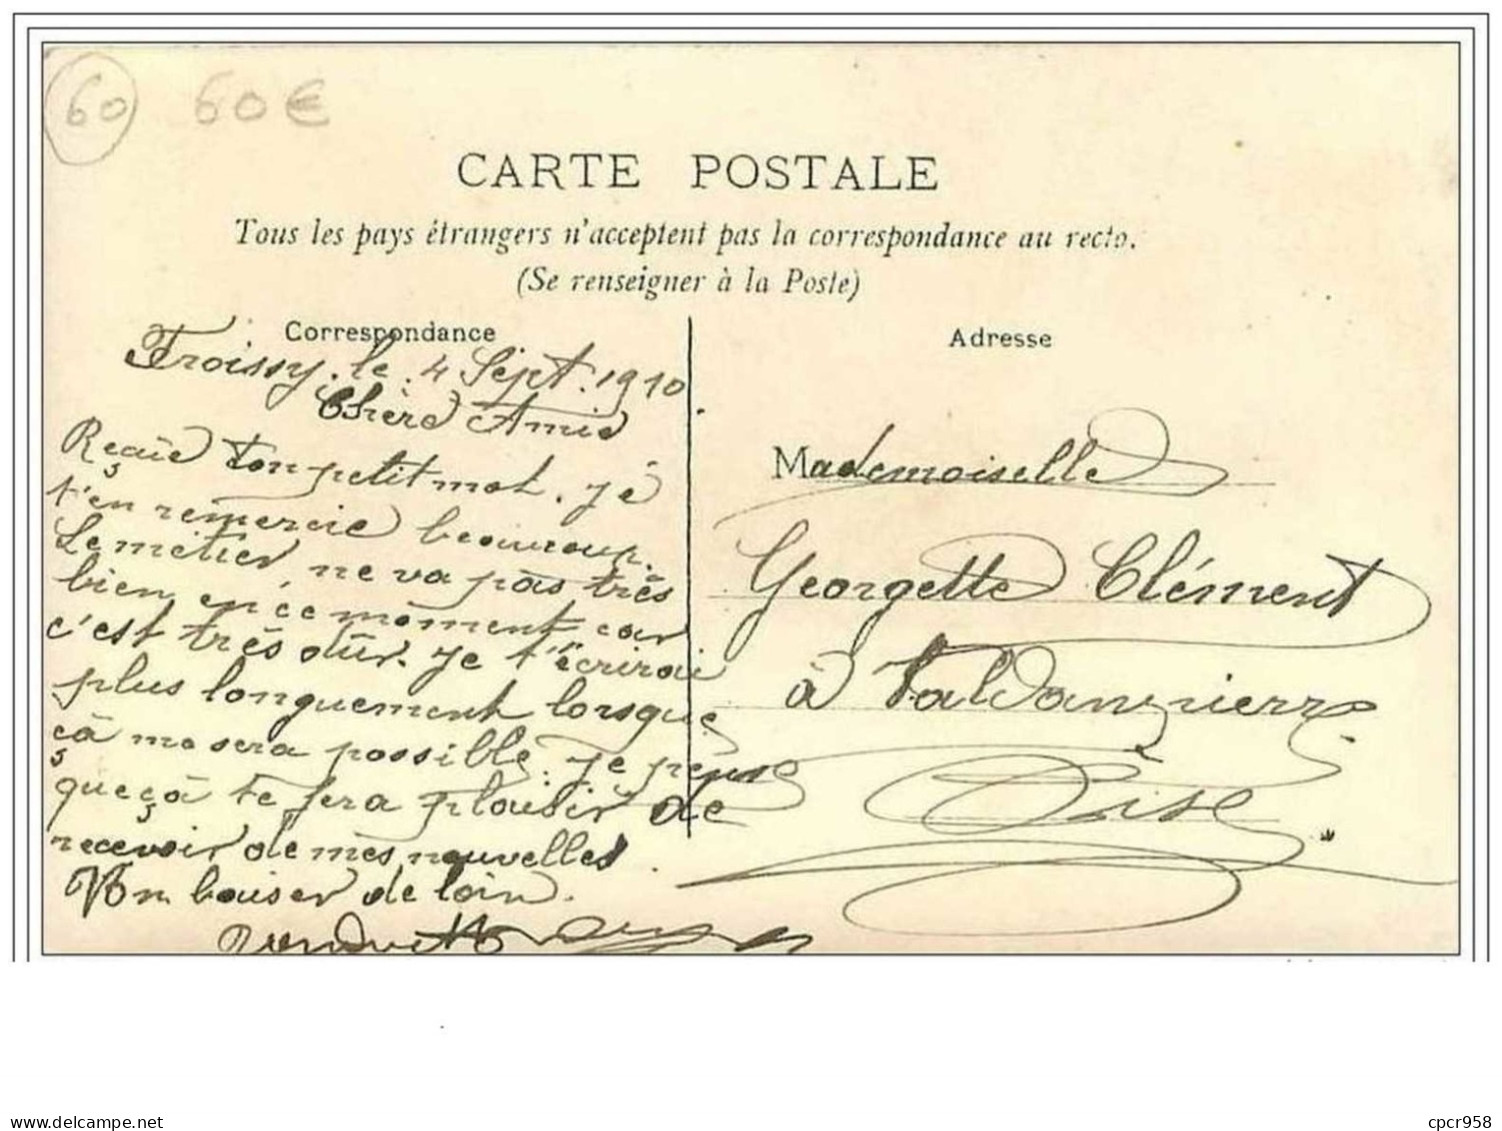 60 60€
CARTE POSTALE
Tous les pays étrangers n'acceptent pas la correspondance au recto.
(Se renseigner à la Poste)
Correspondance
Froissy. le. 4 Sept. 1910
Chère Amie
Reçue ton petit mot. je
t'en remercie beaucoup.
Le métier, ne va pas très
bien en ce moment car
c'est très dûr. je t'écrirai
plus longuement lorsque
çà me sera possible. je pense
que çà te fera plaisir de
recevoir de mes nouvelles.
Bon baiser de loin.
Adresse
Mademoiselle
Georgette Clément
à Valdampierre
Oise
delcampe.net
cpcr958